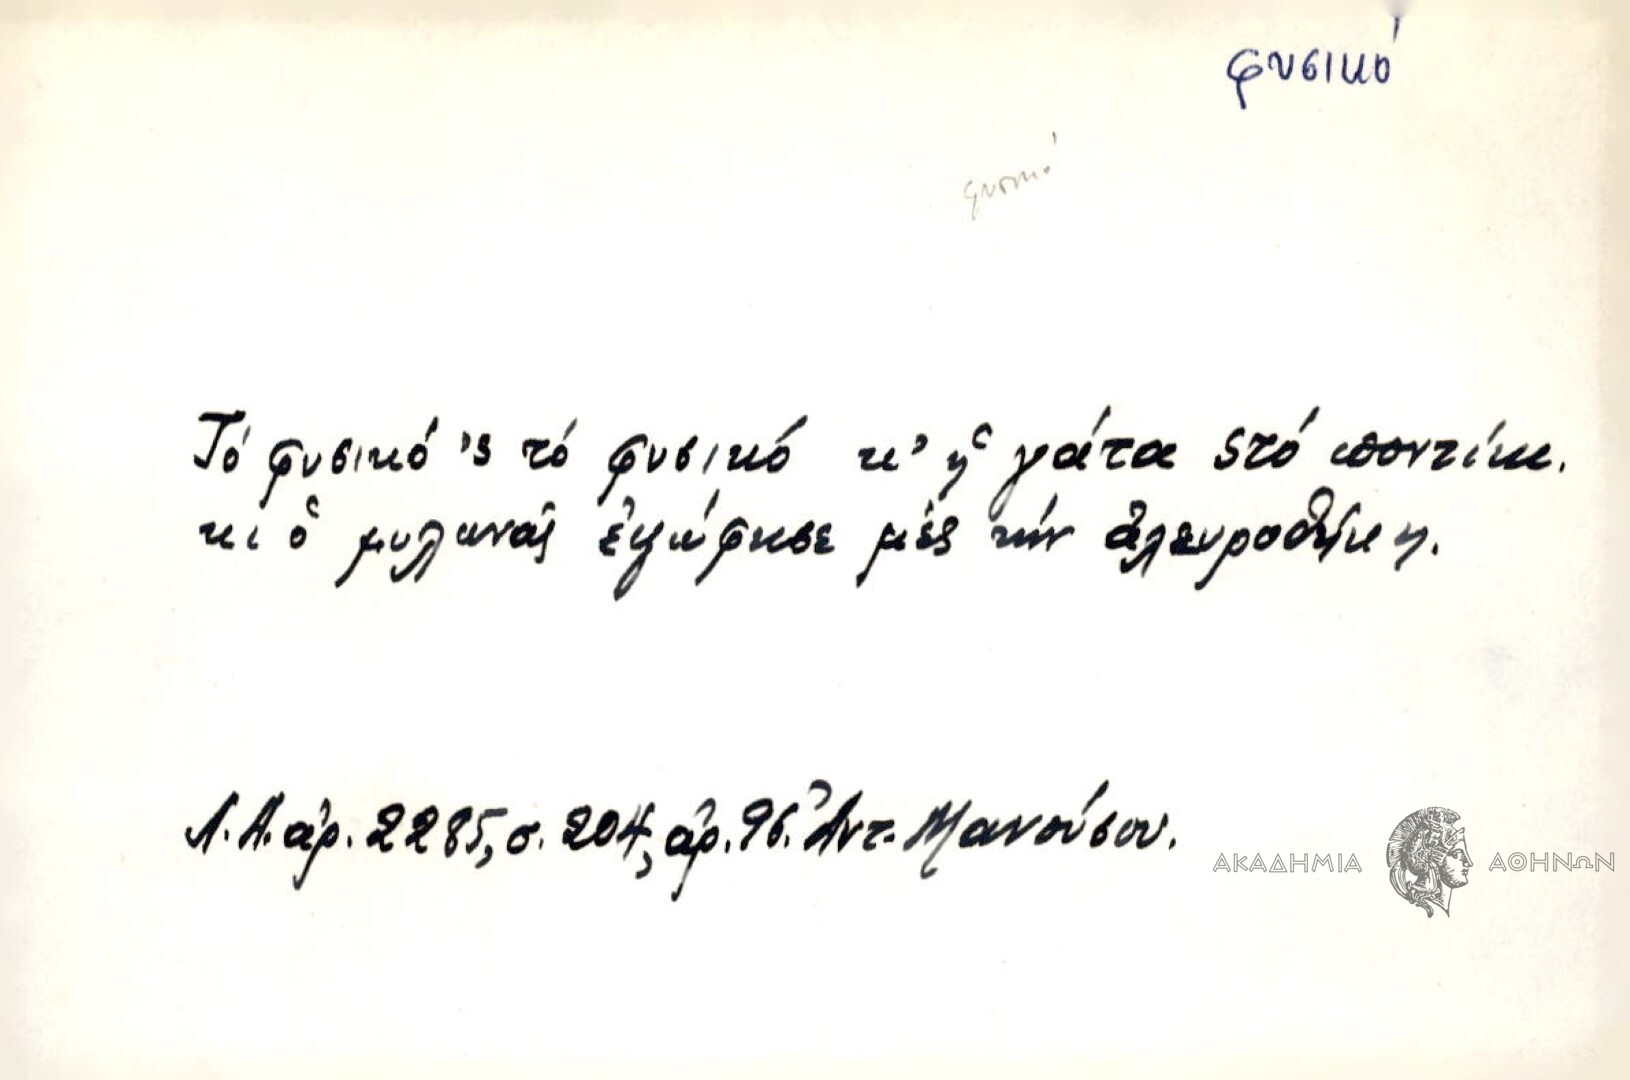 φυσικό
φυσικό
Τό φυσικό 'ς τό φυσικό κ' ἡ γάτα στό ποντίκι.
κι ὁ μυλωνᾶς ἐψώφησε μές τήν ἀλευροθήκη.
Λ.Α. ἀρ. 2285, σ. 204, ἀρ. 96. Ἀντ. Μανούσου.
ΑΚΑΔΗΜΙΑ ΑΘΗΝΩΝ